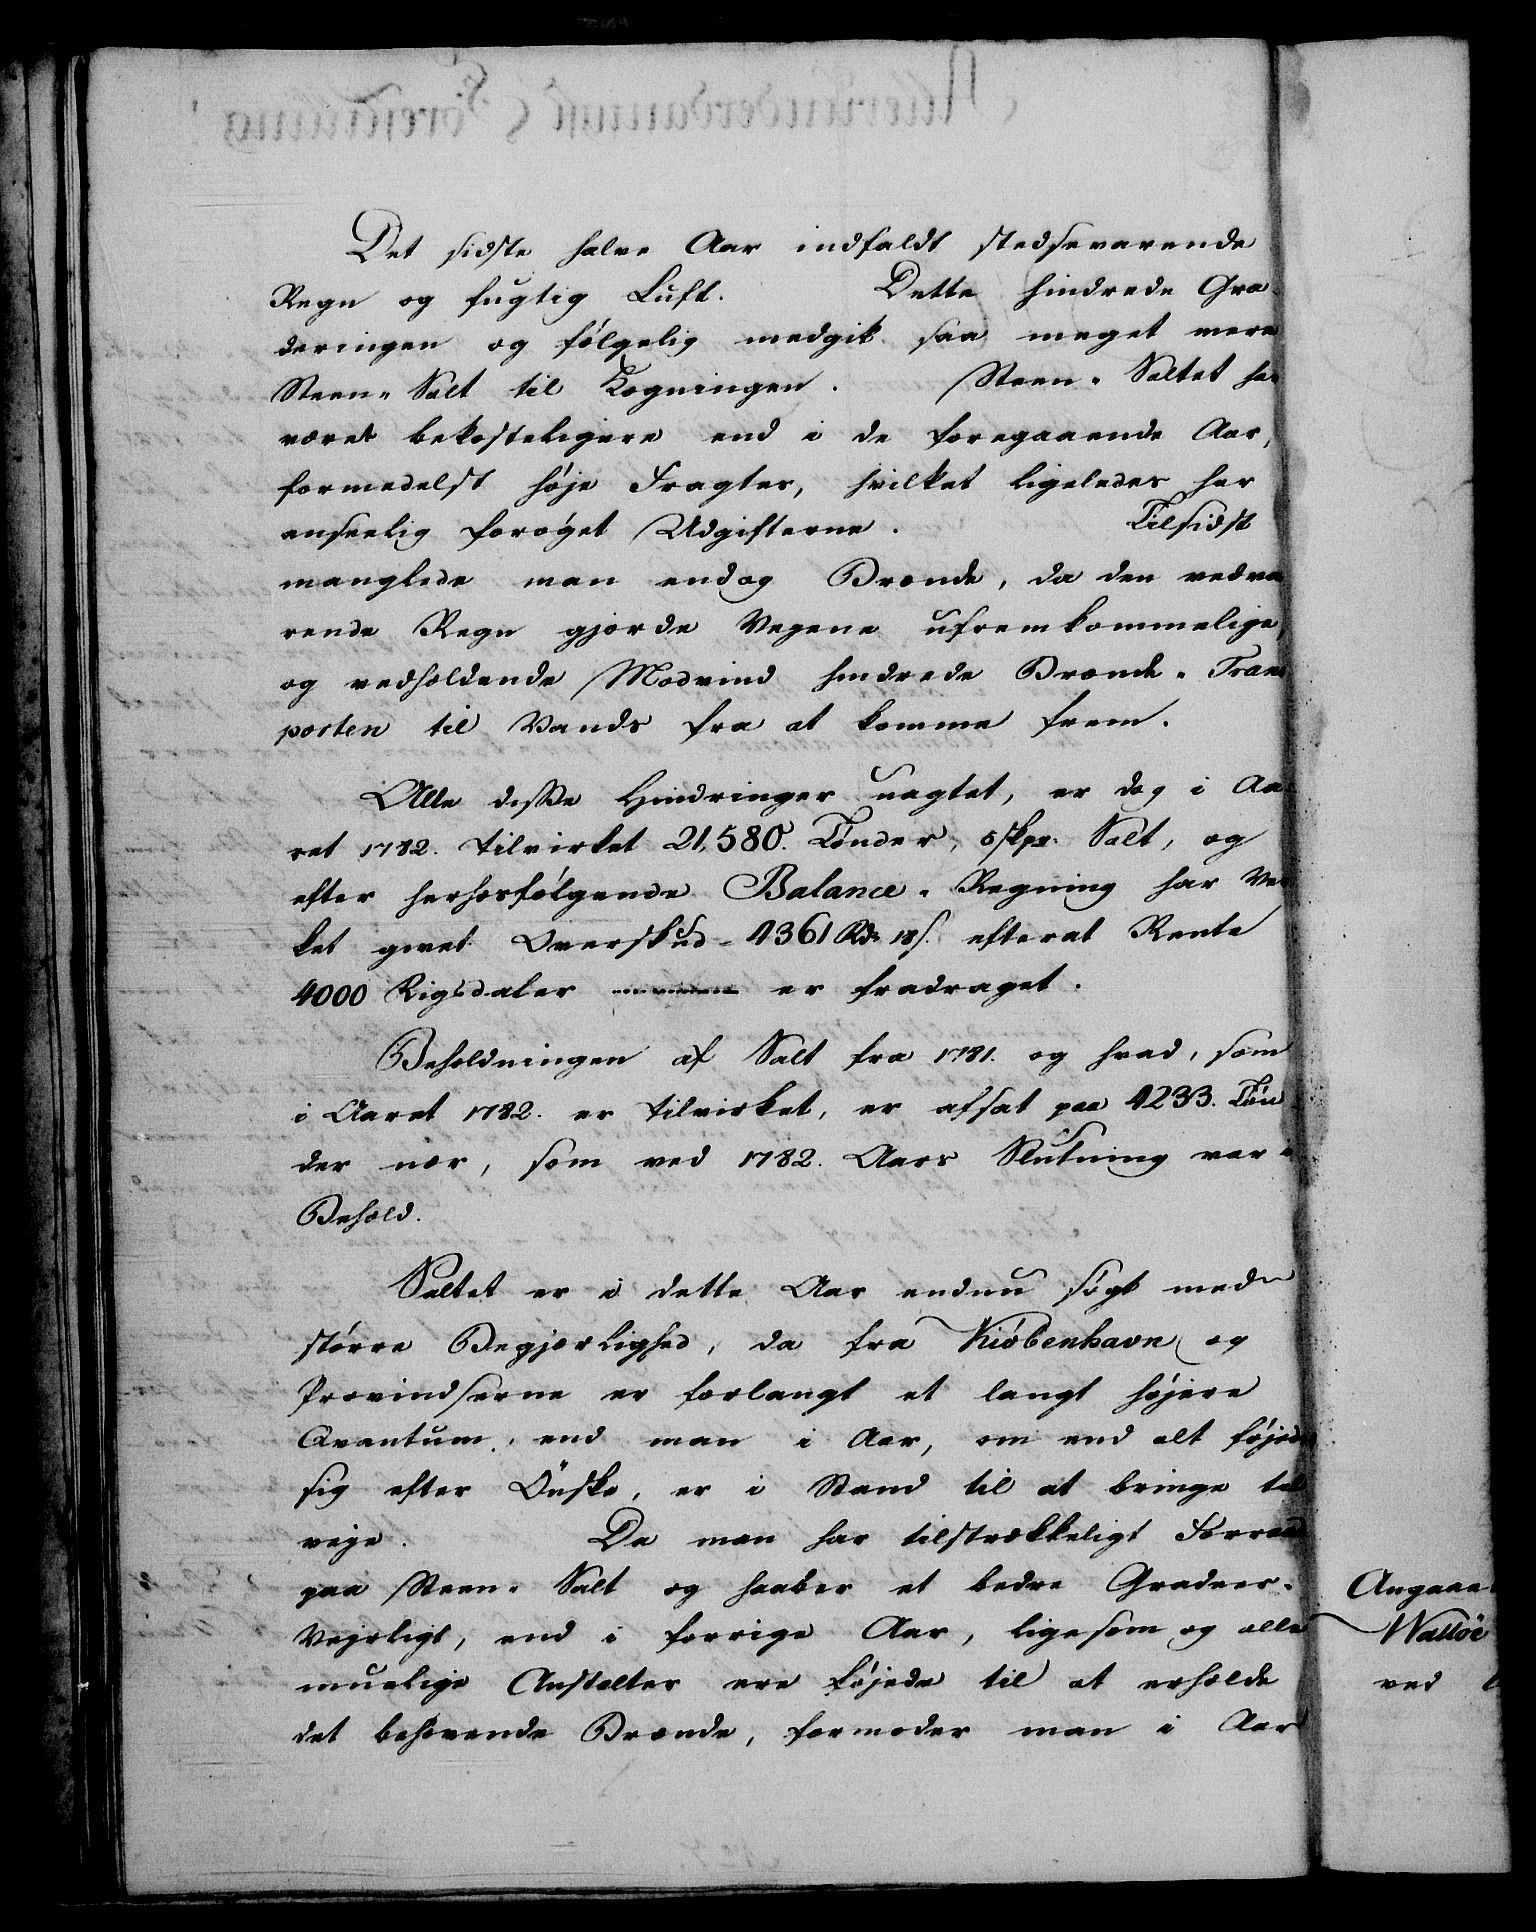 Det sidste halve Aar indfaldt stedsevarende
Regn og fugtig Luft. Dette hindrede Gra-
deringen og følgelig medgik saa meget mere
Steen-Salt til Kogningen. Steen-Saltet har
været bekosteligere end i de foregaaende Aar,
formedelst høje Fragter, hvilket ligeledes har
anseelig forøget Udgifterne. Tilsidst
manglede man endog Brænde, da den vedva
rende Regn gjorde Vegene ufremkommelige,
og vedholdende Modvind hindrede Brænde-Trans
porten til Vands fra at komme frem.
Alle disse Hindringer uagtet, er dog i Aa
ret 1782. tilvirket 21,580. Tønder, 5 skpr. Salt, og
efter herhosfølgende Balance-Regning har Ver
ket givet Overskud - 4361 Rdr 18 s. efterat Rente
4000 Rigsdaler er fradraget.
Beholdningen af Salt fra 1781. og hvad, som
i Aaret 1782. er tilvirket, er afsat paa 4233. Tøn
der nær, som ved 1782. Aars Slutning var i
Behold.
Saltet er i dette Aar endnu søgt med
større Begjærlighed, da fra Kiøbenhavn og
Provindserne er forlangt et langt højere
Qvantum, end man i Aar, om end alt føjede
sig efter Ønske, er i Stand til at bringe til
veje. Da man har tilstrækkeligt Forraad
paa Steen-Salt og haaber et bedre Gradeer-
Vejrligt, end i forrige Aar, ligesom og alle
muelige Anstalter ere føjede til at erholde
det behøvende Brænde, formoder man i Aar
Angaae
Walløe
ved